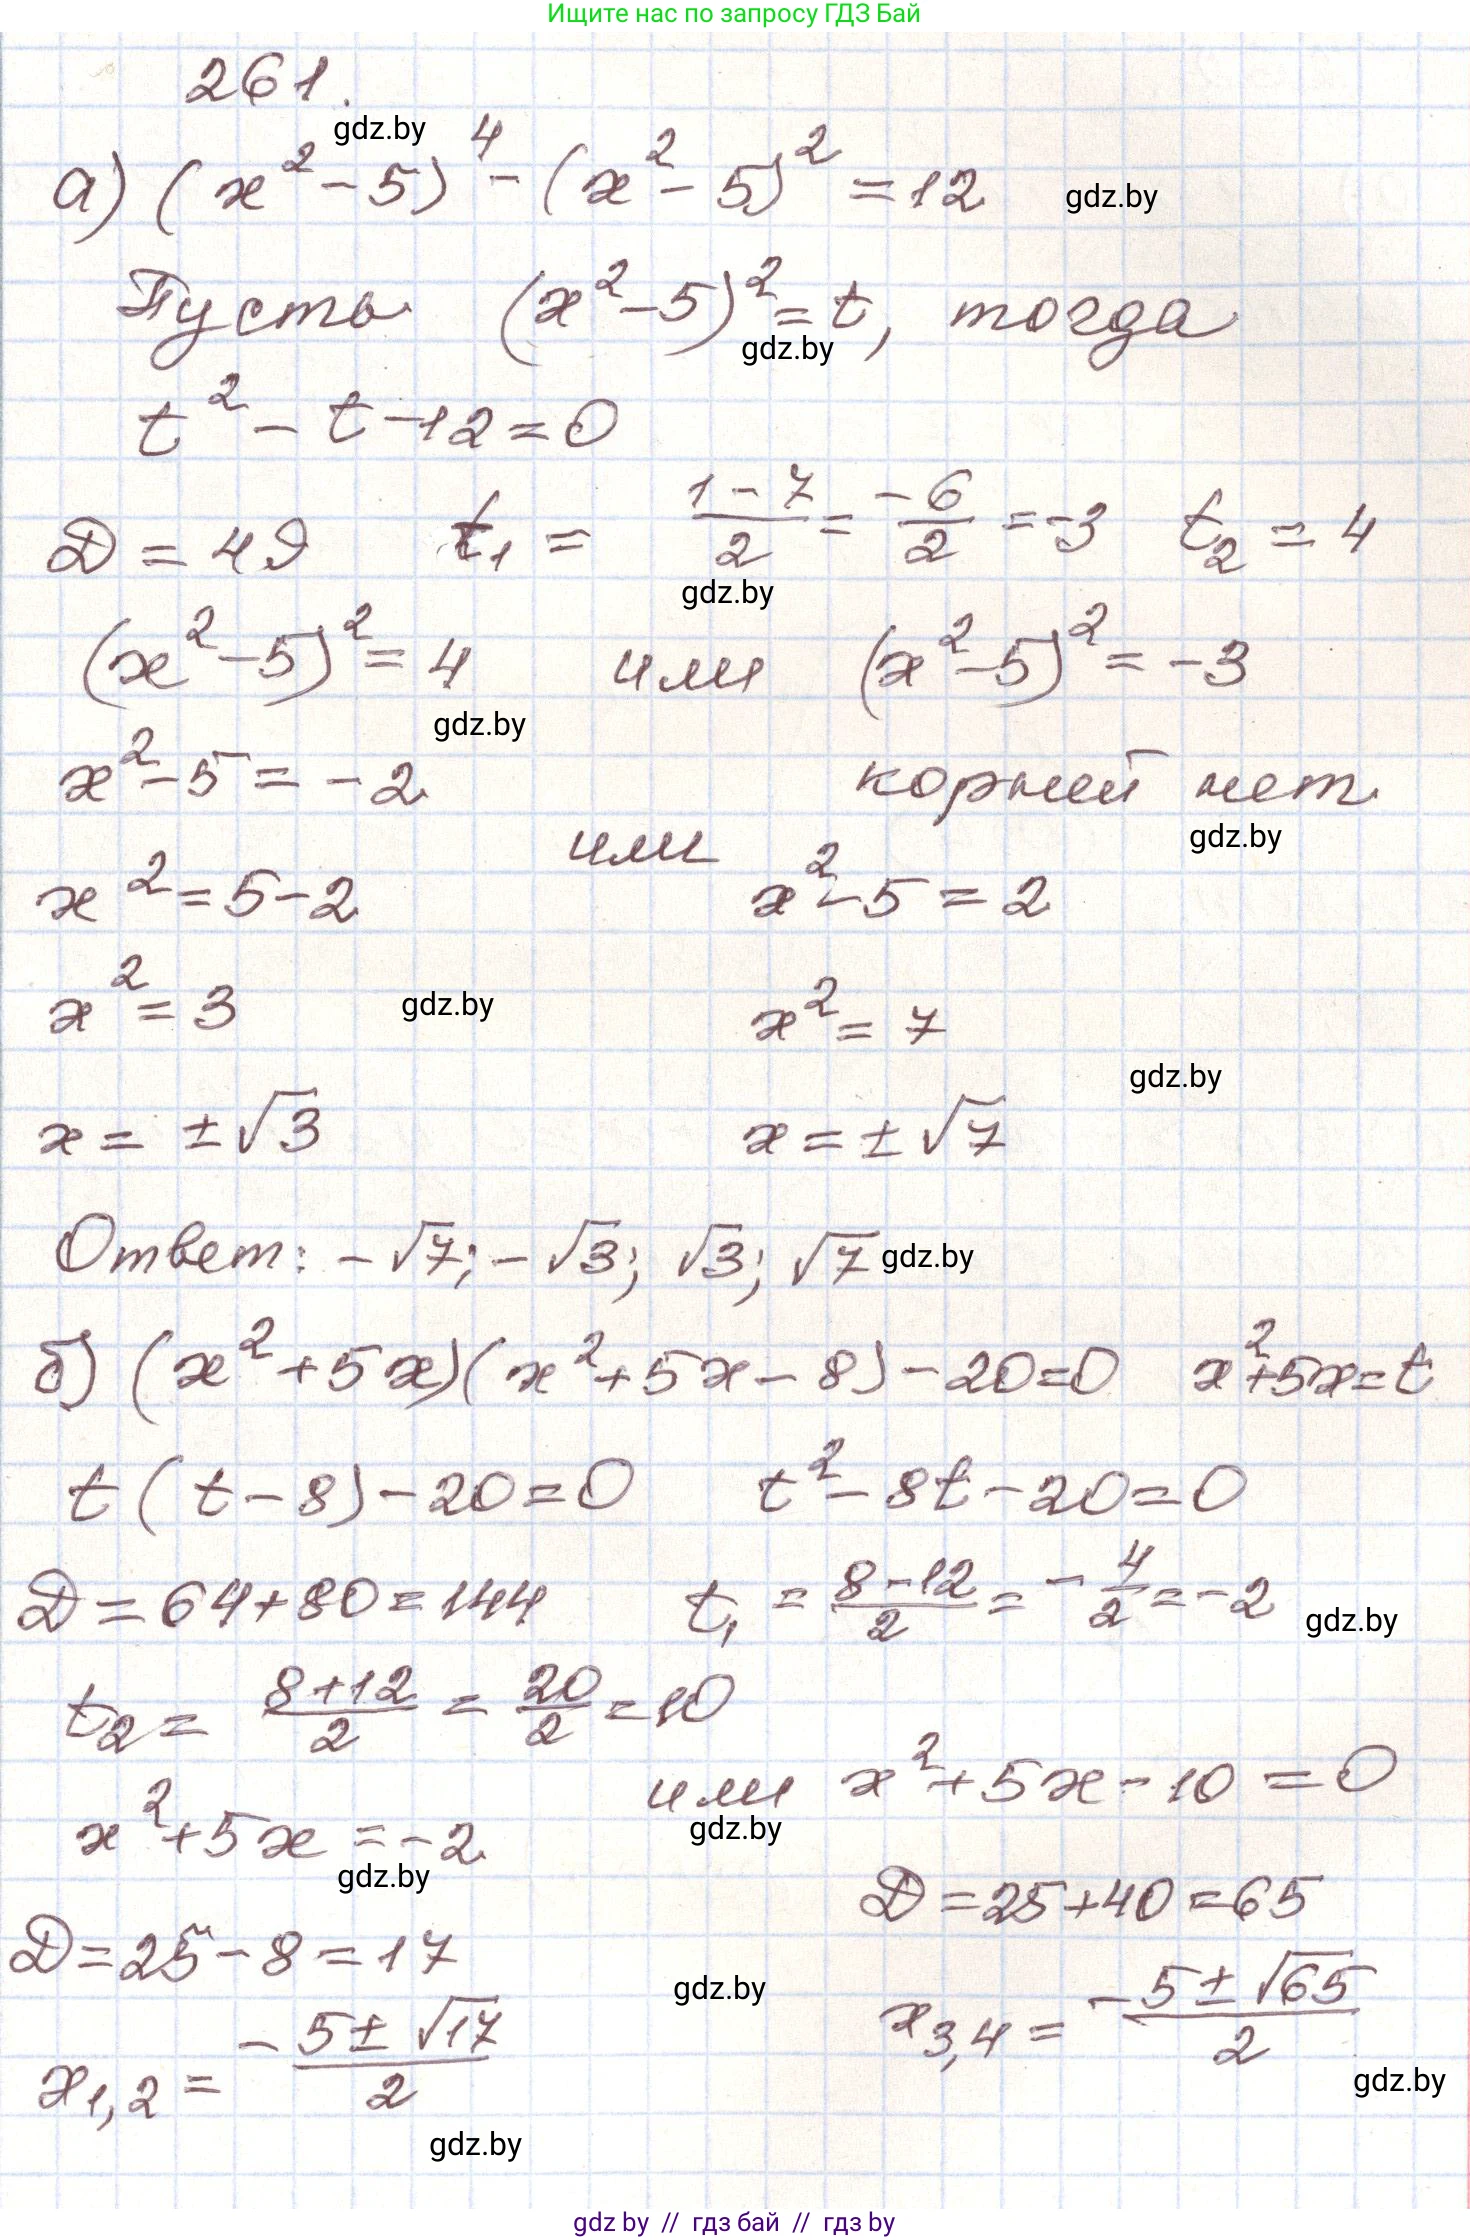 Ищите нас по запросу ГДЗ Бай
261.
gdz.by
а) (x² - 5)⁴ - (x² - 5)² = 12
gdz.by
Пусть (x² - 5)² = t, тогда
gdz.by
t² - t - 12 = 0
D = 49 t₁ = (1 - 7)/2 = -6/2 = -3 t₂ = 4
gdz.by
(x² - 5)² = 4 или (x² - 5)² = -3
gdz.by
x² - 5 = -2 корней нет
gdz.by
или
x² = 5 - 2 x² - 5 = 2
x² = 3 gdz.by x² = 7
gdz.by
x = ±√3 x = ±√7
Ответ: -√7; -√3; √3; √7 gdz.by
б) (x² + 5x)(x² + 5x - 8) - 20 = 0 x² + 5x = t
t(t - 8) - 20 = 0 t² - 8t - 20 = 0
D = 64 + 80 = 144 t₁ = (8 - 12)/2 = -4/2 = -2 gdz.by
t₂ = (8 + 12)/2 = 20/2 = 10
x² + 5x = -2 или x² + 5x - 10 = 0
gdz.by
gdz.by
D = 25 - 8 = 17 D = 25 + 40 = 65
gdz.by
x₁,₂ = (-5 ± √17)/2 x₃,₄ = (-5 ± √65)/2
gdz.by
gdz.by
gdz by // гдз бай // гдз by